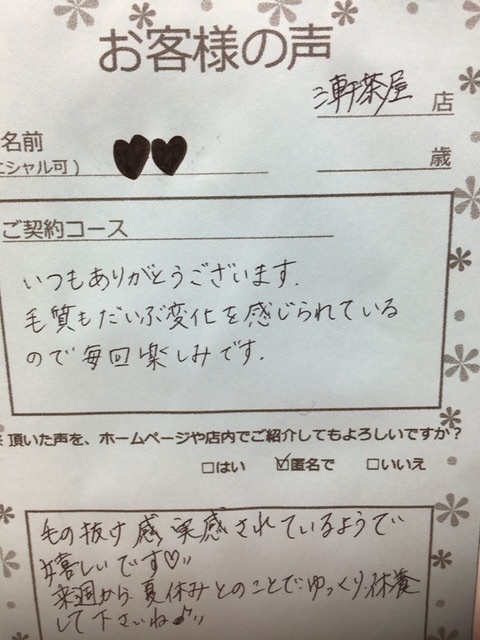 お客様の声
三軒茶屋 店
名前
ニシャル可)
歳
ご契約コース
いつもありがとうございます.
毛質もだいぶ変化を感じられている
ので毎回楽しみです.
※頂いた声を、ホームページや店内でご紹介してもよろしいですか?
□はい ☑匿名で □いいえ
毛の抜け感、実感されているようで
嬉しいです♡〃
来週から夏休みとのことでゆっくり休養
して下さいね♪〃